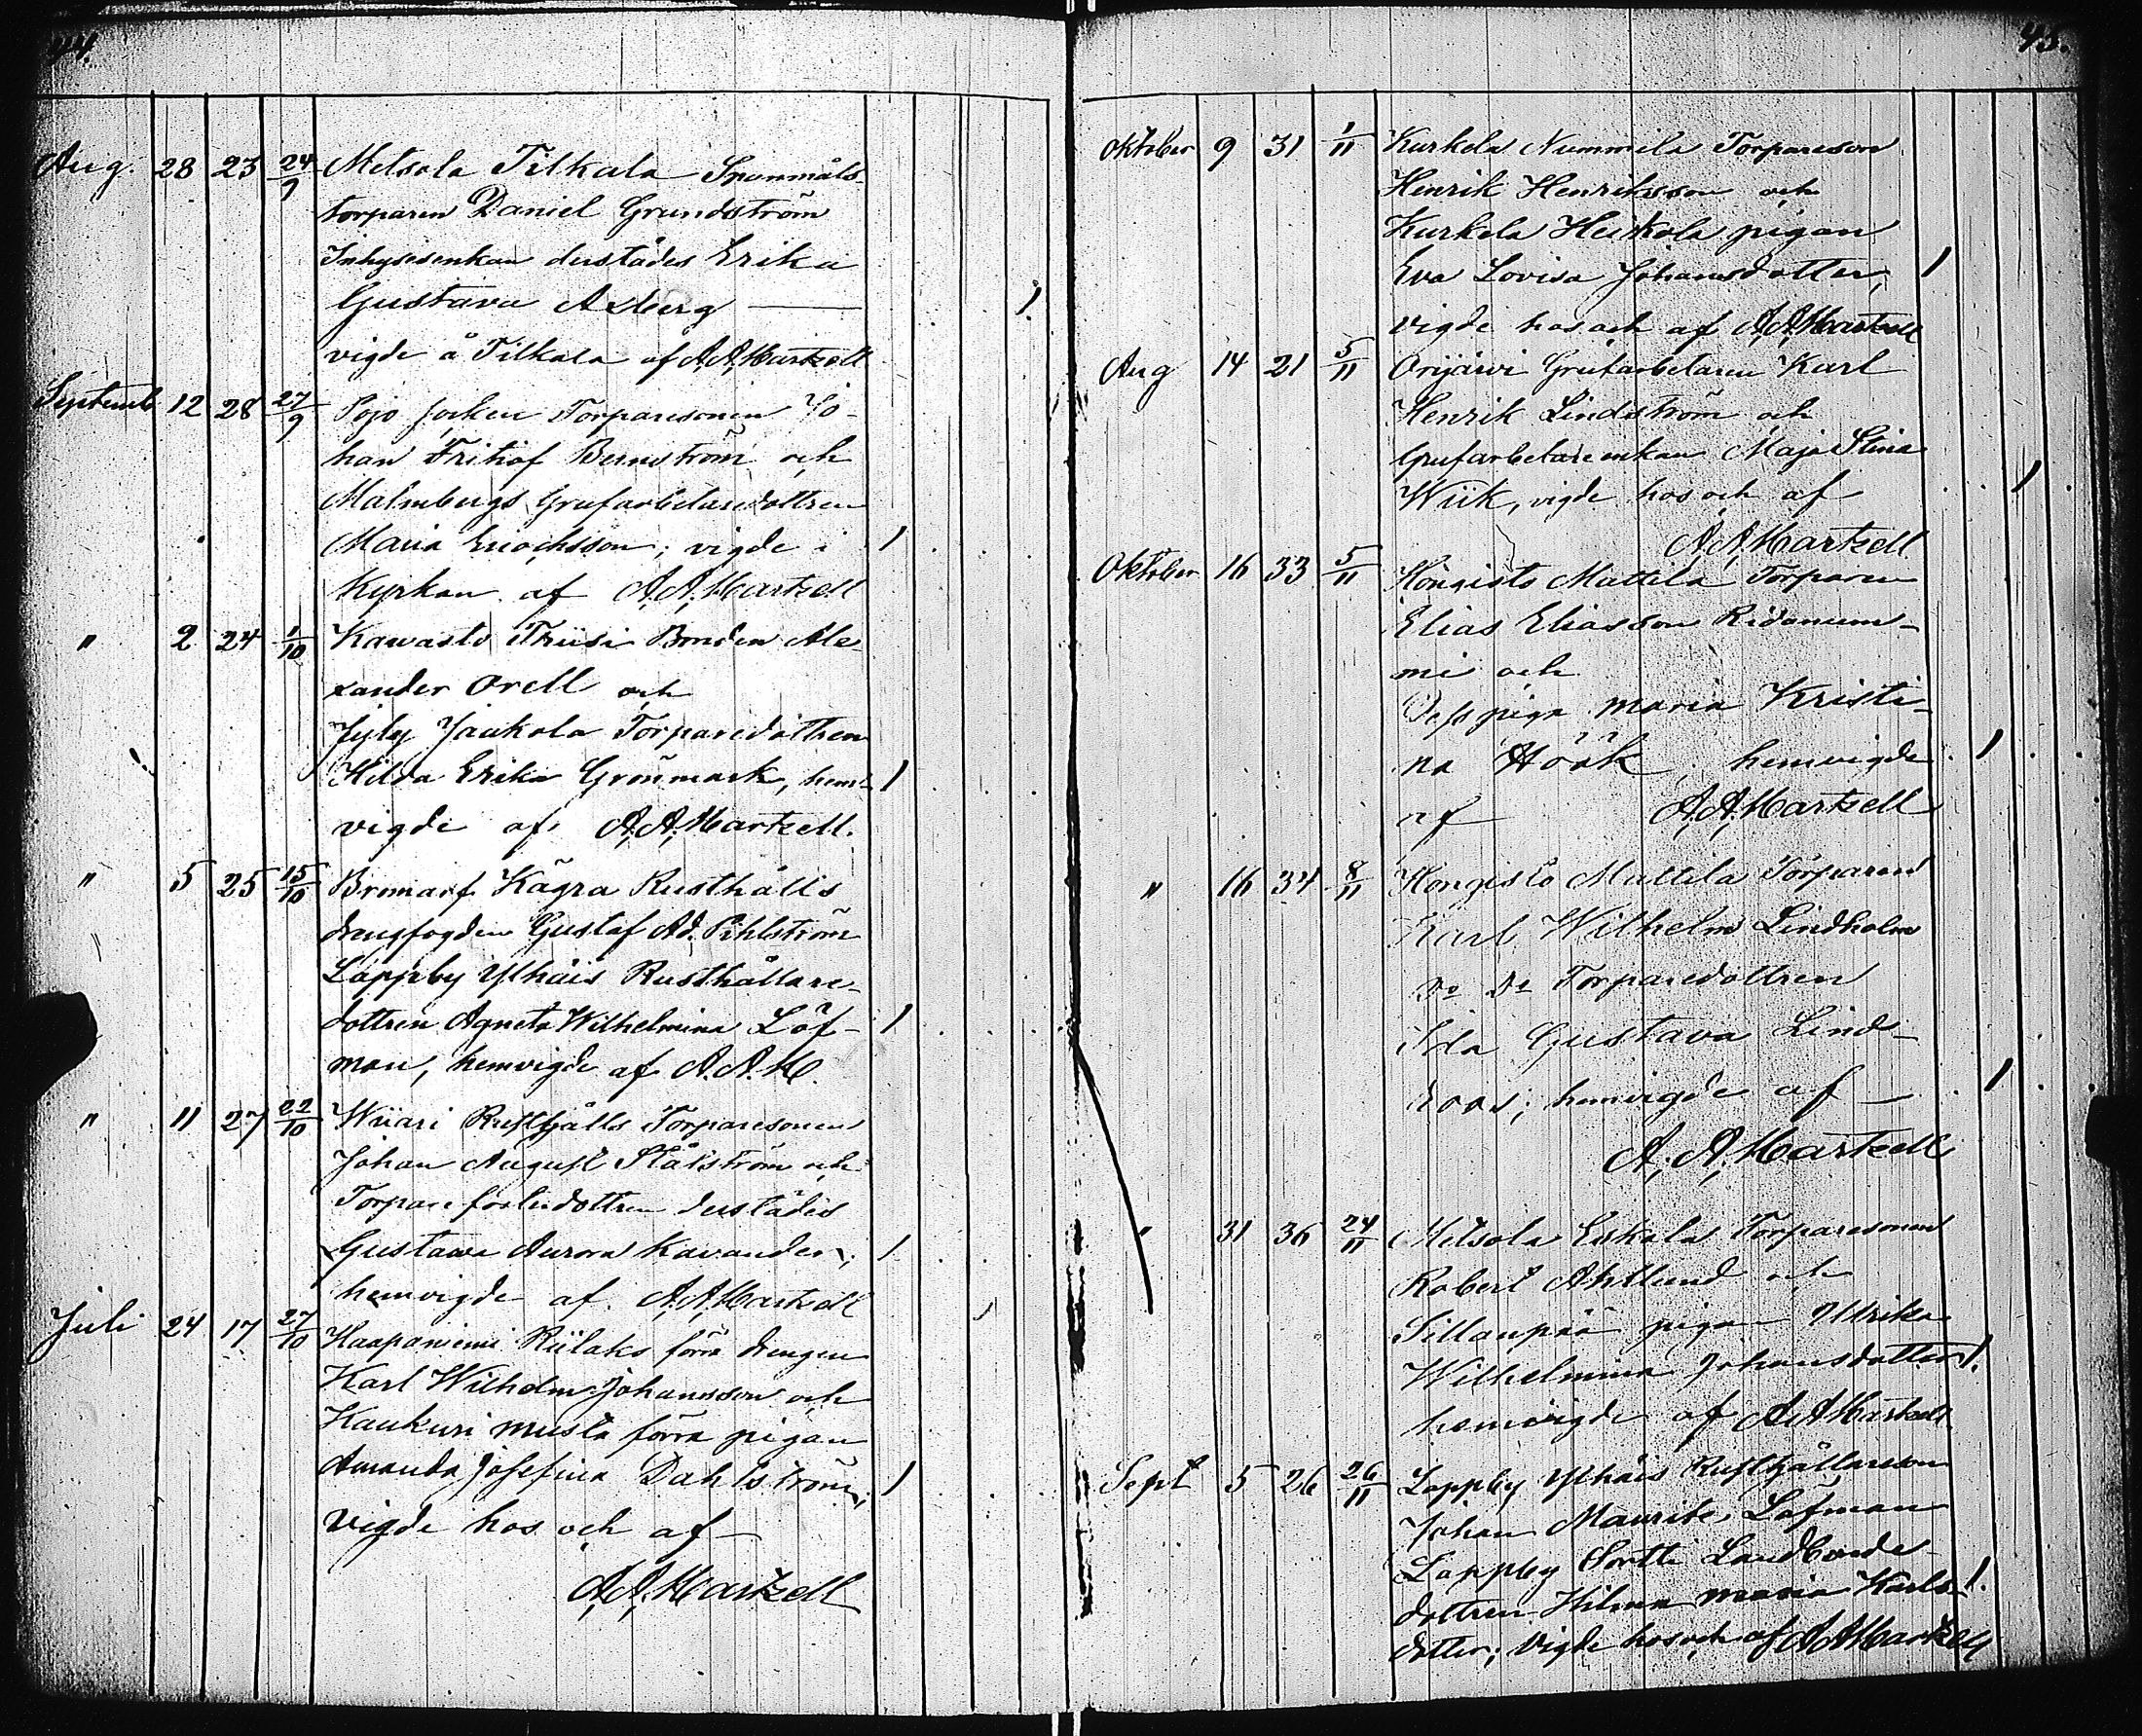 44.
Aug. 28 23 24/9 Metsola Tilkala Spanmåls-
torparen Daniel Grundström
Inhysesenkan derstädes Erika
Gustava Axberg — 1.
vigde å Tilkala af A.A. Hartzell
Septemb 12 28 27/9 Pojo Torparesonen Jo-
han Frithiof Bernström och
Malmbergs Grufarbetaredottren
Maria Enochsson; vigde i 1
Kyrkan af A.A. Hartzell
" 2 24 1/10 Kawasto Thiisi Bonden Ale-
xander Orell och
Jyly Jaukola Torparedottren
Hilda Erika Grönmark, hem- 1
vigde af A.A. Hartzell.
" 5 25 15/10 Bromarf Kägra Rusthålls
drengfogden Gustaf Ad. Pihlström
Lappby Ylhäis Rusthållare-
dottren Agneta Wilhelmina Löf- 1
man, hemvigde af A.A.H.
" 11 27 22/10 Wiiari Rusthålls Torparesonen
Johan August Stålström och
Torpare dottren derstädes
Gustawa Aurora Kavander; 1
hemvigde af A.A. Hartzell
Juli 24 17 27/10 Haapaniemi Riilaks förra drengen
Karl Wilhelm Johansson och
Kaukuri Musta förra pigan
Amanda Josefina Dahlström; 1
Vigde hos och af —
A.A. Hartzell
45.
Oktober 9 31 1/11 Kurkela Nummila Torpareson
Henrik Henriksson och
Kurkela Heikola pigan
Eva Lovisa Johansdotter, 1
vigde hos och af A.A. Hartzell
Aug 14 21 5/11 Orijärvi Grufarbetaren Karl
Henrik Lindström och
Grufarbetareenkan Maja Stina
Wiik, vigde hos och af 1
A.A. Hartzell
Oktober 16 33 5/11 Hongisto Mattila Torparen
Elias Eliasson Ridanum-
mi och
Dess piga Maria Kristi-
na Höök, hemvigde 1
af A.A. Hartzell
" 16 34 8/11 Hongisto Mattila Torparen
Karl Wilhelm Lindholm
Do Do Torparedottren
Ida Gustava Lind-
roos; hemvigde af — 1
A.A. Hartzell
" 31 36 24/11 Metsola Eskola Torparesonen
Robert Ahllund och
Sillanpää pigan Ulrika
Wilhelmina Johansdotter 1.
hemvigde af A.A. Hartzell.
Sept 5 26 26/11 Lappby Ylhäis Rusthållareson
Johan Mauritz Löfman
Lappby Sortti Landbonde-
dottren Hilma Maria Karls- 1.
dotter; Vigde hos och af A.A. Hartzell